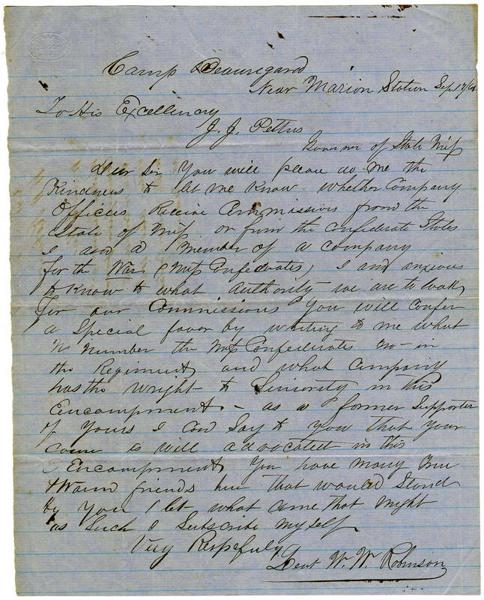 Camp Beauregard
Near Marion Station Sep 17/61
To His Excellency
J. J. Pettus
Governor of State Miss
Dear Sir You will please do me the
Kindness to let me Know whether Company
Officers Receive Commissions from the
State of Miss or from the Confederate States
I am a Member of a Company
for the War (Miss Confederates) I am anxious
to know to what Authority we are to look
for our Commissions You will confer
a Special favor by writing to me what
No number the Miss Confederates are in
the Regiment and what company
has the Wright to Siniority in this
Encampment - as a former Supporter
of Yours I can Say to You that your
course is well advocated in this
Encampment You have many true
& Warm friends here that would Stand
by You let what come that Might
as Such I Subscribe myself
Very Respefuly
Lieut W. W. Robinson